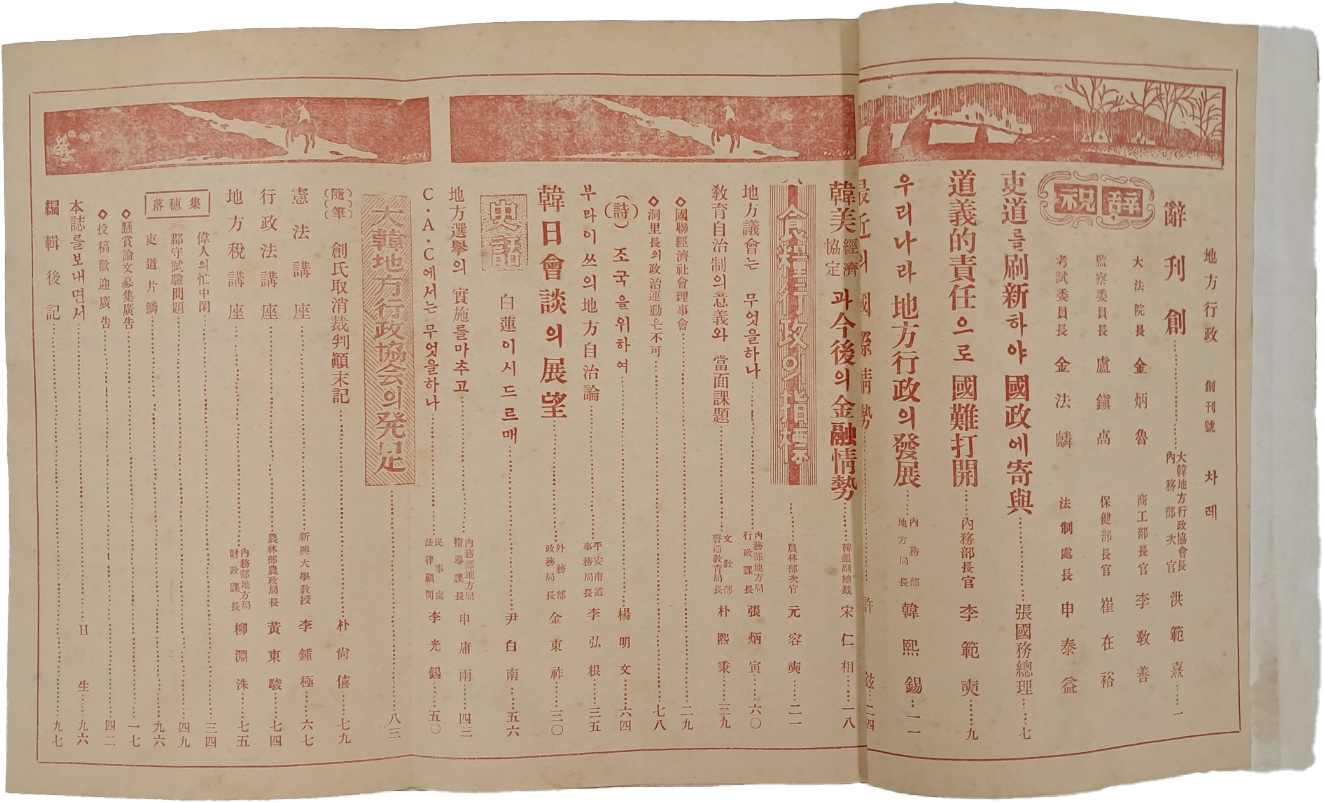 地方行政 創刊號 차례
創刊辭……大韓地方行政協會長 內務部次官 洪範熹……一
祝辭
大法院長 金炳魯 商工部長官 李敎善
監察委員長 盧鎭卨 保健部長官 崔在裕
考試委員長 金法麟 法制處長 申泰益
吏道를刷新하야 國政에寄與……張國務總理……七
道義的責任으로 國難打開……內務部長官 李範奭……九
우리나라 地方行政의發展……內務部地方局長 韓熙錫……一一
最近의國際情勢 許 二四
韓美經濟協定과今後의金融情勢……韓銀副總裁 宋仁相……一八
食糧行政의指標……農林部次官 元容奭……二一
地方議會는 무엇을하나……內務部地方局行政課長 張炳寅……六〇
敎育自治制의意義와 當面課題……文敎部普通敎育局長 朴熙秉……三九
◇國聯經濟社會理事會……二九
◇洞里長의政治運動은不可……七八
(詩) 조국을위하여……楊明文……六四
부라이쓰의地方自治論……平安南道事務局長 李弘根……三五
韓日會談의展望……外務部政務局長 金東祚……三〇
史話 白蓮이시드르매……尹白南……五六
地方選擧의 實施를마추고……內務部地方局指導課長 申庸雨……四三
C・A・C에서는 무엇을하나……民事處法律顧問 李光錫……五〇
大韓地方行政協会의発足……八三
(隨筆) 創氏取消裁判顚末記……朴尙僖……七九
憲法講座……新興大學敎授 李鍾極……六七
行政法講座……農林部農政局長 黃東駿……七四
地方稅講座……內務部地方局財政課長 柳淵洙……七五
落穗集
偉人의忙中閑……三四
郡守試驗問題……四九
吏道片鱗……九六
◇懸賞論文募集廣告……一七
◇投稿歡迎廣告……四二
本誌를보내면서……H生……九六
編輯後記……九七